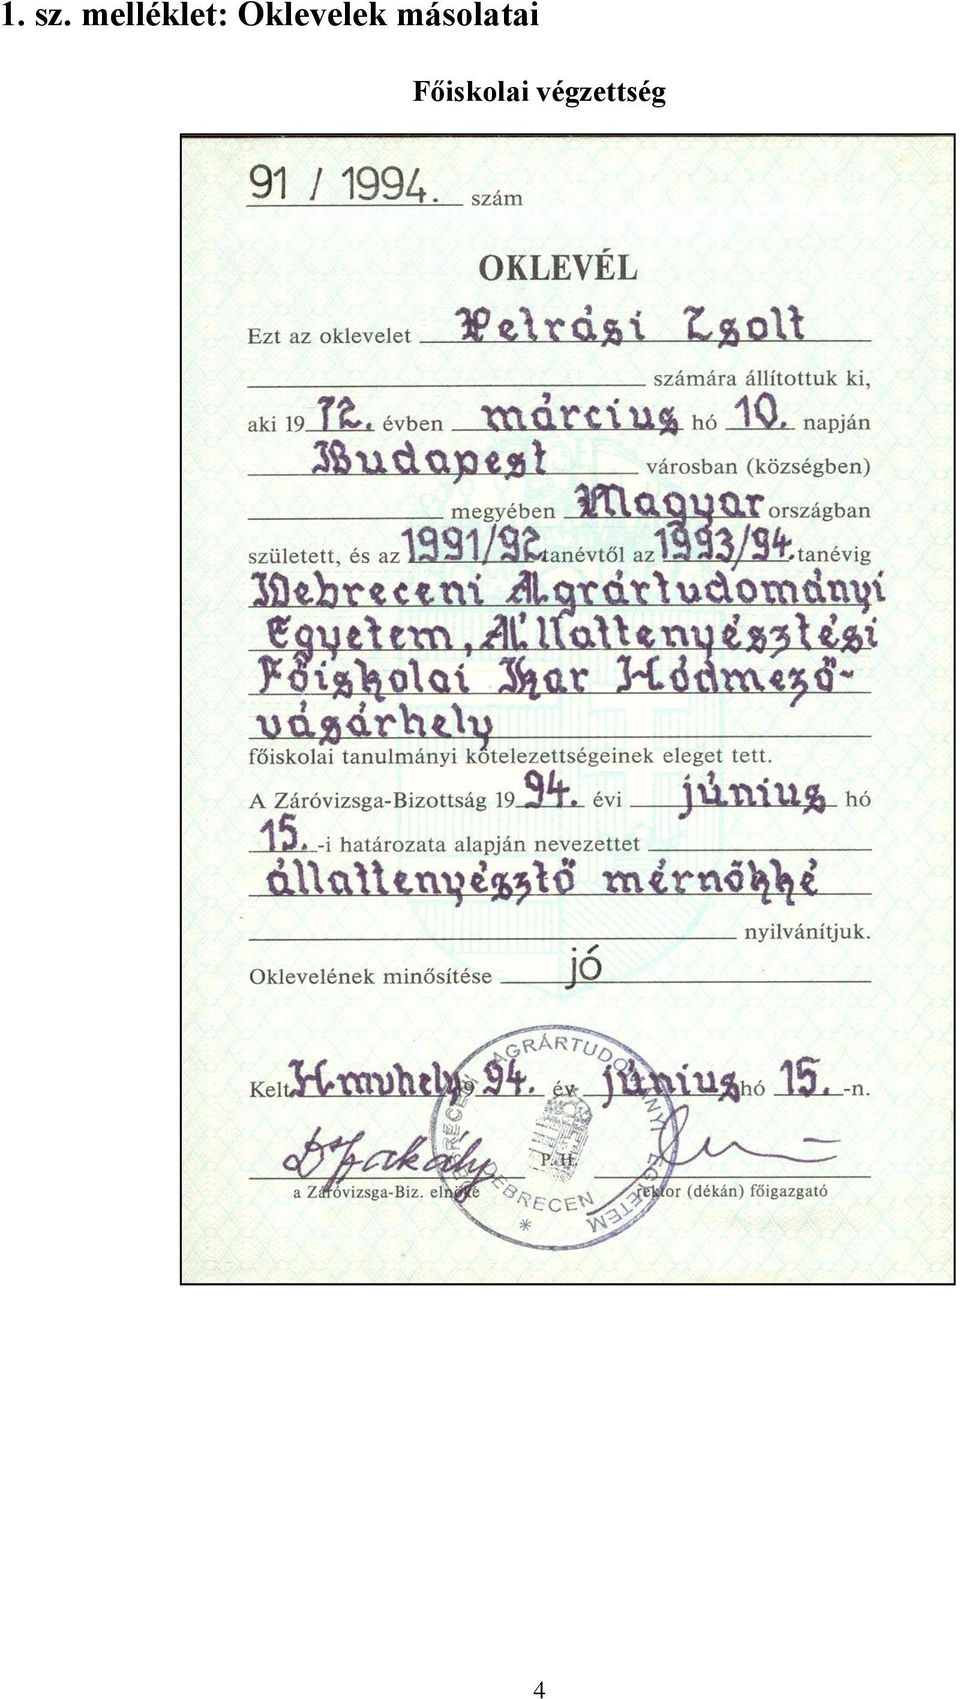 1. sz. melléklet: Oklevelek másolatai
Főiskolai végzettség
91 / 1994. szám
OKLEVÉL
Ezt az oklevelet Petrási Zsolt
számára állítottuk ki,
aki 19 72. évben március hó 10. napján
Budapest városban (községben)
megyében Magyar országban
született, és az 1991/92 tanévtől az 1993/94. tanévig
Debreceni Agrártudományi
Egyetem, Állattenyésztési
Főiskolai Kar Hódmező-
vásárhely
főiskolai tanulmányi kötelezettségeinek eleget tett.
A Záróvizsga-Bizottság 19 94. évi június hó
15. -i határozata alapján nevezettet
állattenyésztő mérnökké
nyilvánítjuk.
Oklevelének minősítése jó
Kelt Hmvhely 19 94. év június hó 15. -n.
P. H.
a Záróvizsga-Biz. elnöke rektor (dékán) főigazgató
DEBRECENI AGRÁRTUDOMÁNYI EGYETEM
DEBRECEN
*
4